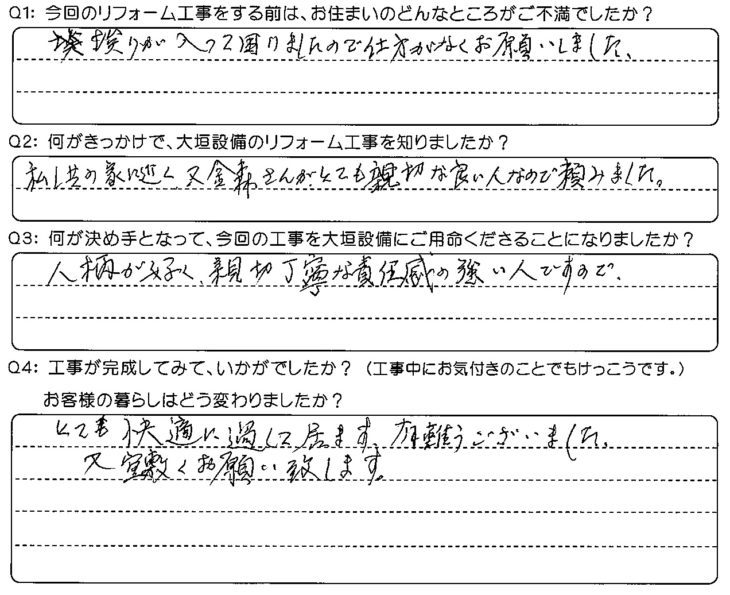 Q1: 今回のリフォーム工事をする前は、お住まいのどんなところがご不満でしたか？
埃りが入って困りましたので仕方がなくお願いしました、
Q2: 何がきっかけで、大垣設備のリフォーム工事を知りましたか？
私共の家に近く、又金森さんがとても親切な良い人なので頼みました。
Q3: 何が決め手となって、今回の工事を大垣設備にご用命くださることになりましたか？
人柄が好く、親切丁寧な責任感の強い人ですので、
Q4: 工事が完成してみて、いかがでしたか？（工事中にお気付きのことでもけっこうです。）
お客様の暮らしはどう変わりましたか？
とても快適に過して居ます、有難うございました、
又宜敷くお願い致します。